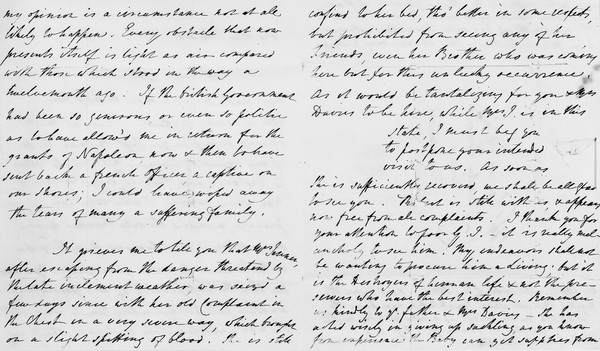 my opinion is a circumstance not at all
likely to happen. Every obstacle that now
presents itself is light as air compared
with those which stood in the way a
twelvemonth ago. If the British Government
had been so generous or even so politic
as to have allow'd me in return for the
grants of Napoleon now & then to have
sent back a french officer a captive on
our shores; I could have wiped away
the tears of many a suffering family.
It grieves me to tell you that Mrs Jenner,
after escaping from the danger threatend by
the late inclement weather, was seiz'd a
few days since with her old Complaint in
the Chest in a very severe way, which brought
on a slight spitting of blood. She is still
confind to her bed, tho' better in some respects,
but prohibited from seeing any of her
Friends, even her Brother who was coming
here but for this unlucky occurrence
As it would be tantalizing for you & Mrs
Davies to be here, while Mrs J. is in this
state, I must beg you
to postpone your intended
visit to us. As soon as
she is sufficiently recoverd, we shall be all glad
to see you. is still with us & appears
now free from all complaints. I thank you for
your attention to poor J. - it is really mel-
ancholy to see him. My endeavors shall not
be wanting to procure him a living, but it
is the Destroyers of human life & not the pre-
servers who have the best interest. Remember
us kindly to yr. father & Mrs Davies - She has
acted wisely in giving up suckling as you know
from experience the Baby can get supplies from